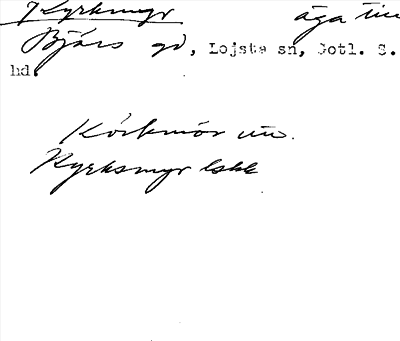 Kyrkmyr äga till
Bjärs gd, Lojsta sn, Gotl. S.
hd.
Körkmör
Kyrksmyr lskk